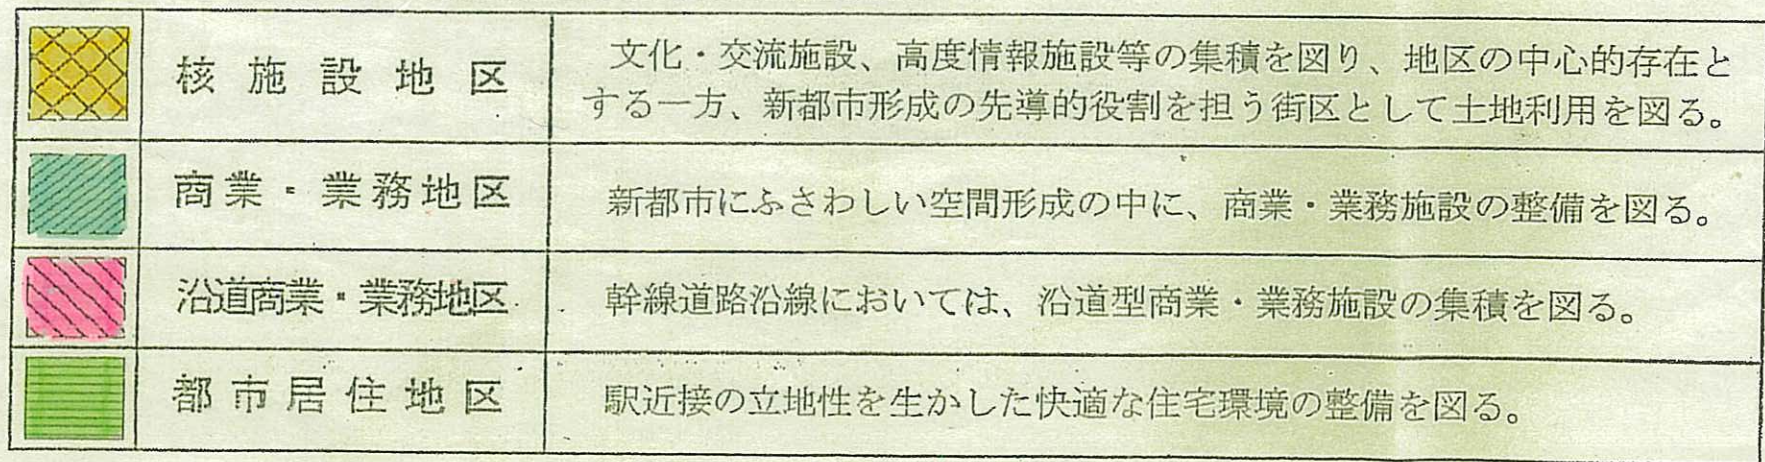 核施設地区
文化・交流施設、高度情報施設等の集積を図り、地区の中心的存在と
する一方、新都市形成の先導的役割を担う街区として土地利用を図る。
商業・業務地区
新都市にふさわしい空間形成の中に、商業・業務施設の整備を図る。
沿道商業・業務地区
幹線道路沿線においては、沿道型商業・業務施設の集積を図る。
都市居住地区
駅近接の立地性を生かした快適な住宅環境の整備を図る。